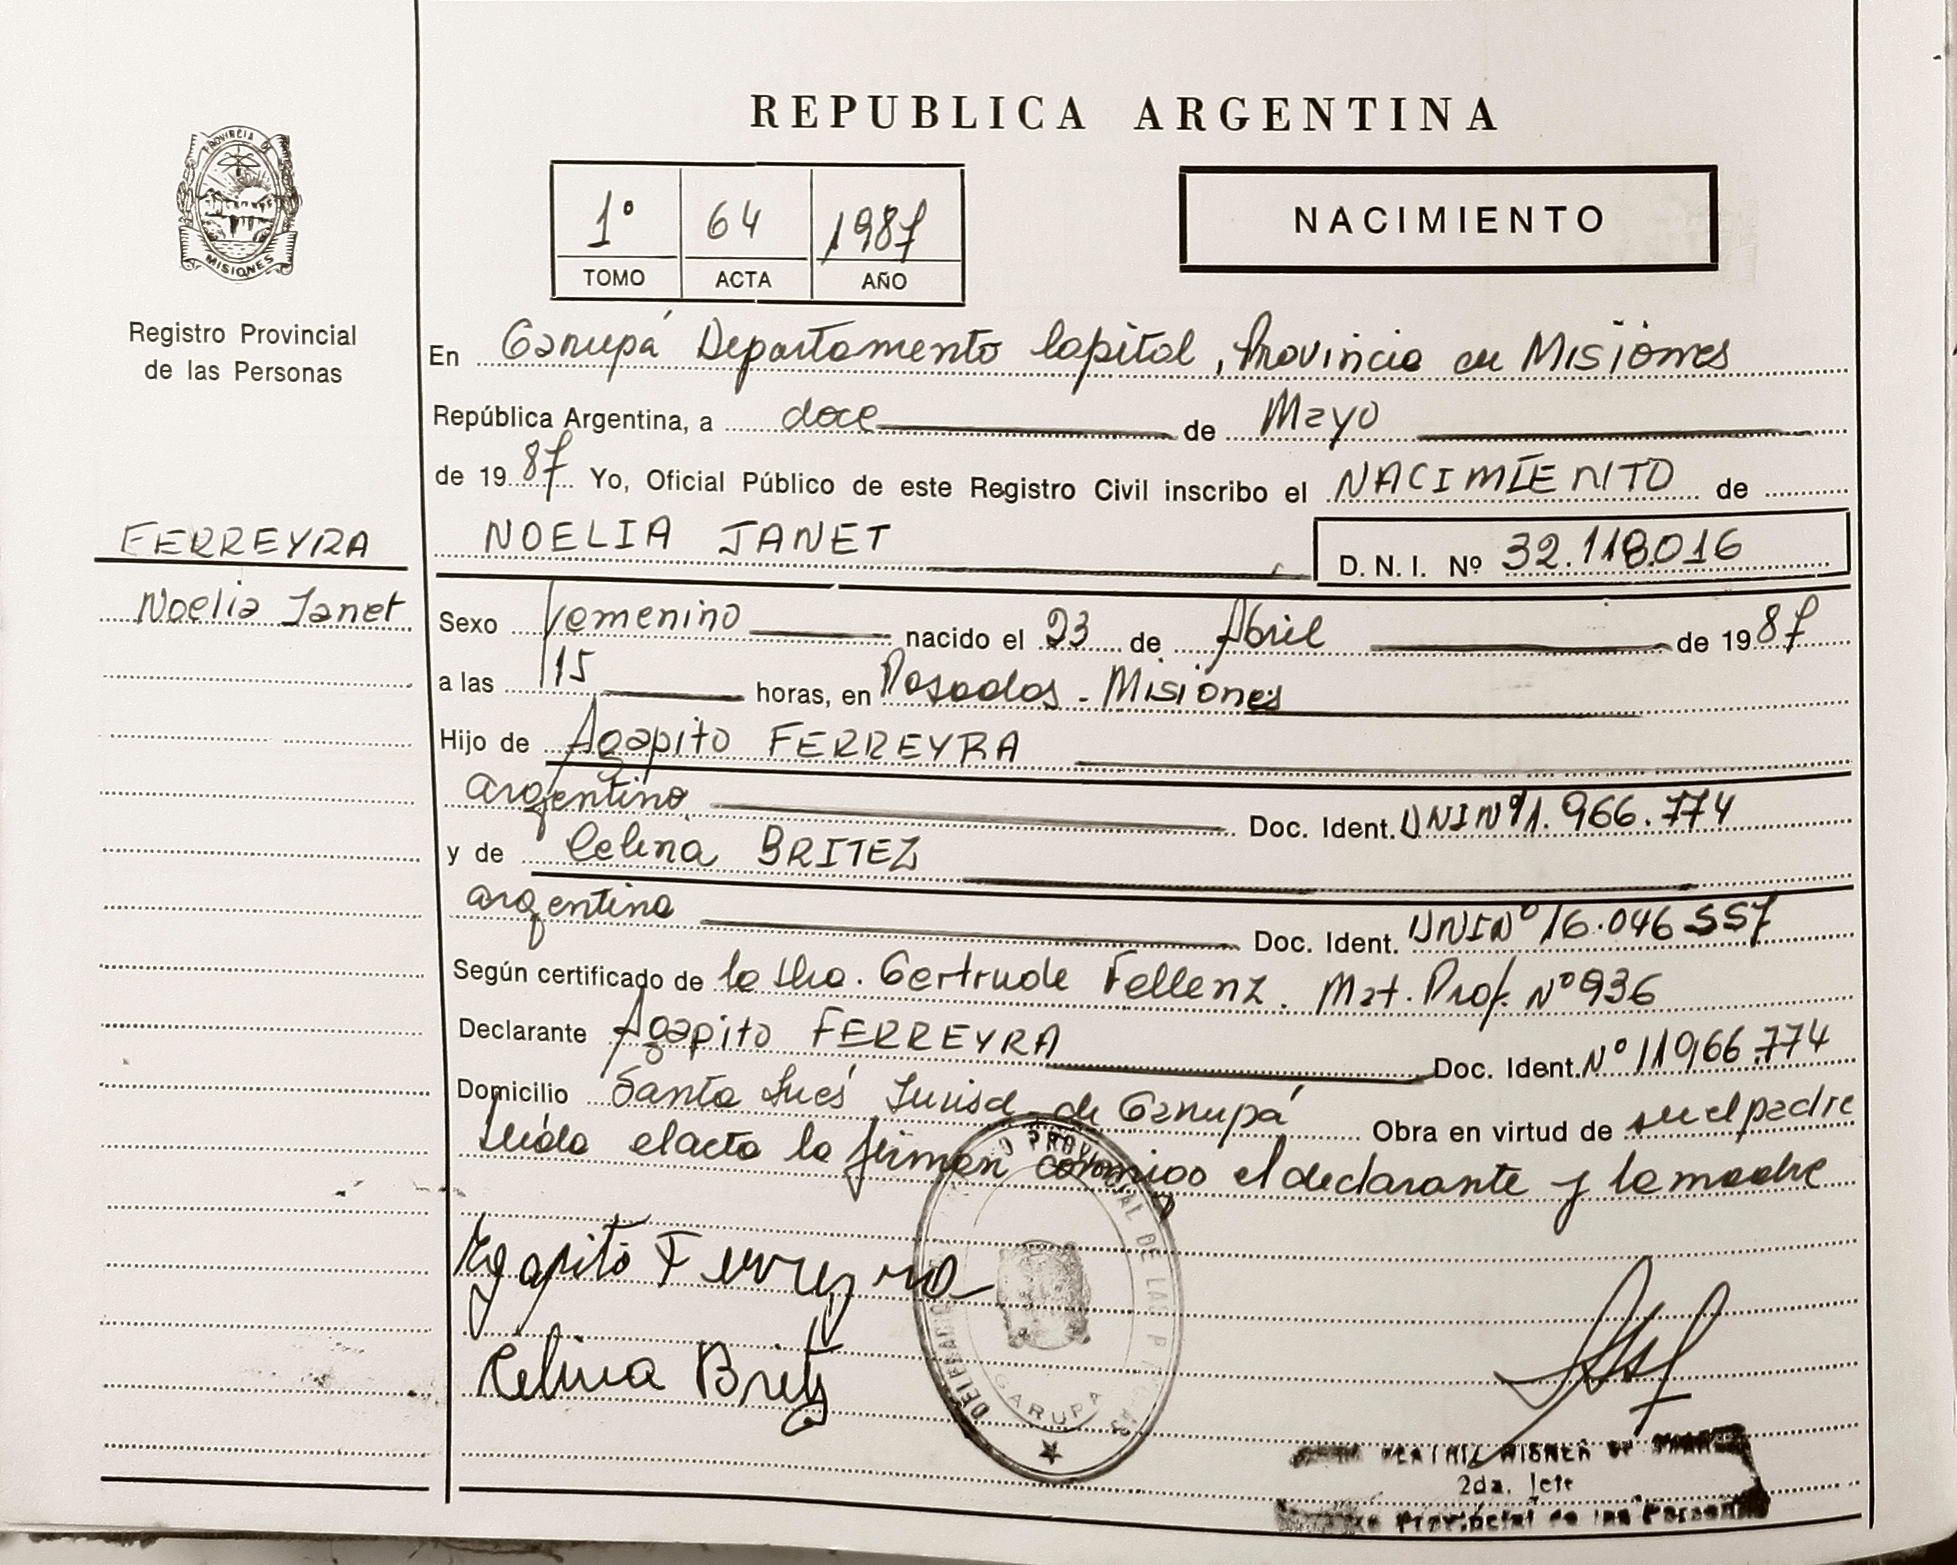 REPUBLICA ARGENTINA
PROVINCIA DE
MISIONES
Registro Provincial
de las Personas
1º 64 1987
TOMO ACTA AÑO
NACIMIENTO
En Garupá Departamento Capital, Provincia de Misiones
República Argentina, a doce de Mayo
de 1987 Yo, Oficial Público de este Registro Civil inscribo el NACIMIENTO de
FERREYRA
NOELIA JANET D. N. I. Nº 32.118.016
Noelia Janet
Sexo Femenino nacido el 23 de Abril de 1987
a las 15 horas, en Posadas - Misiones
Hijo de Agapito FERREYRA
argentino Doc. Ident. DNI Nº 11.966.774
y de Celina BRITEZ
argentina Doc. Ident. DNI Nº 16.046.557
Según certificado de la Gertrude Fellenz. Mat. Prof. Nº 936
Declarante Agapito FERREYRA Doc. Ident. Nº 11966.774
Domicilio Santa Inés de Garupá Obra en virtud de su el padre
Leída el acta la firman conmigo el declarante y la madre
Agapito Ferreyra
Celina Britez
PROVINCIAL DE LAS
GARUPA
2da. Jefe
Provincial de las Personas